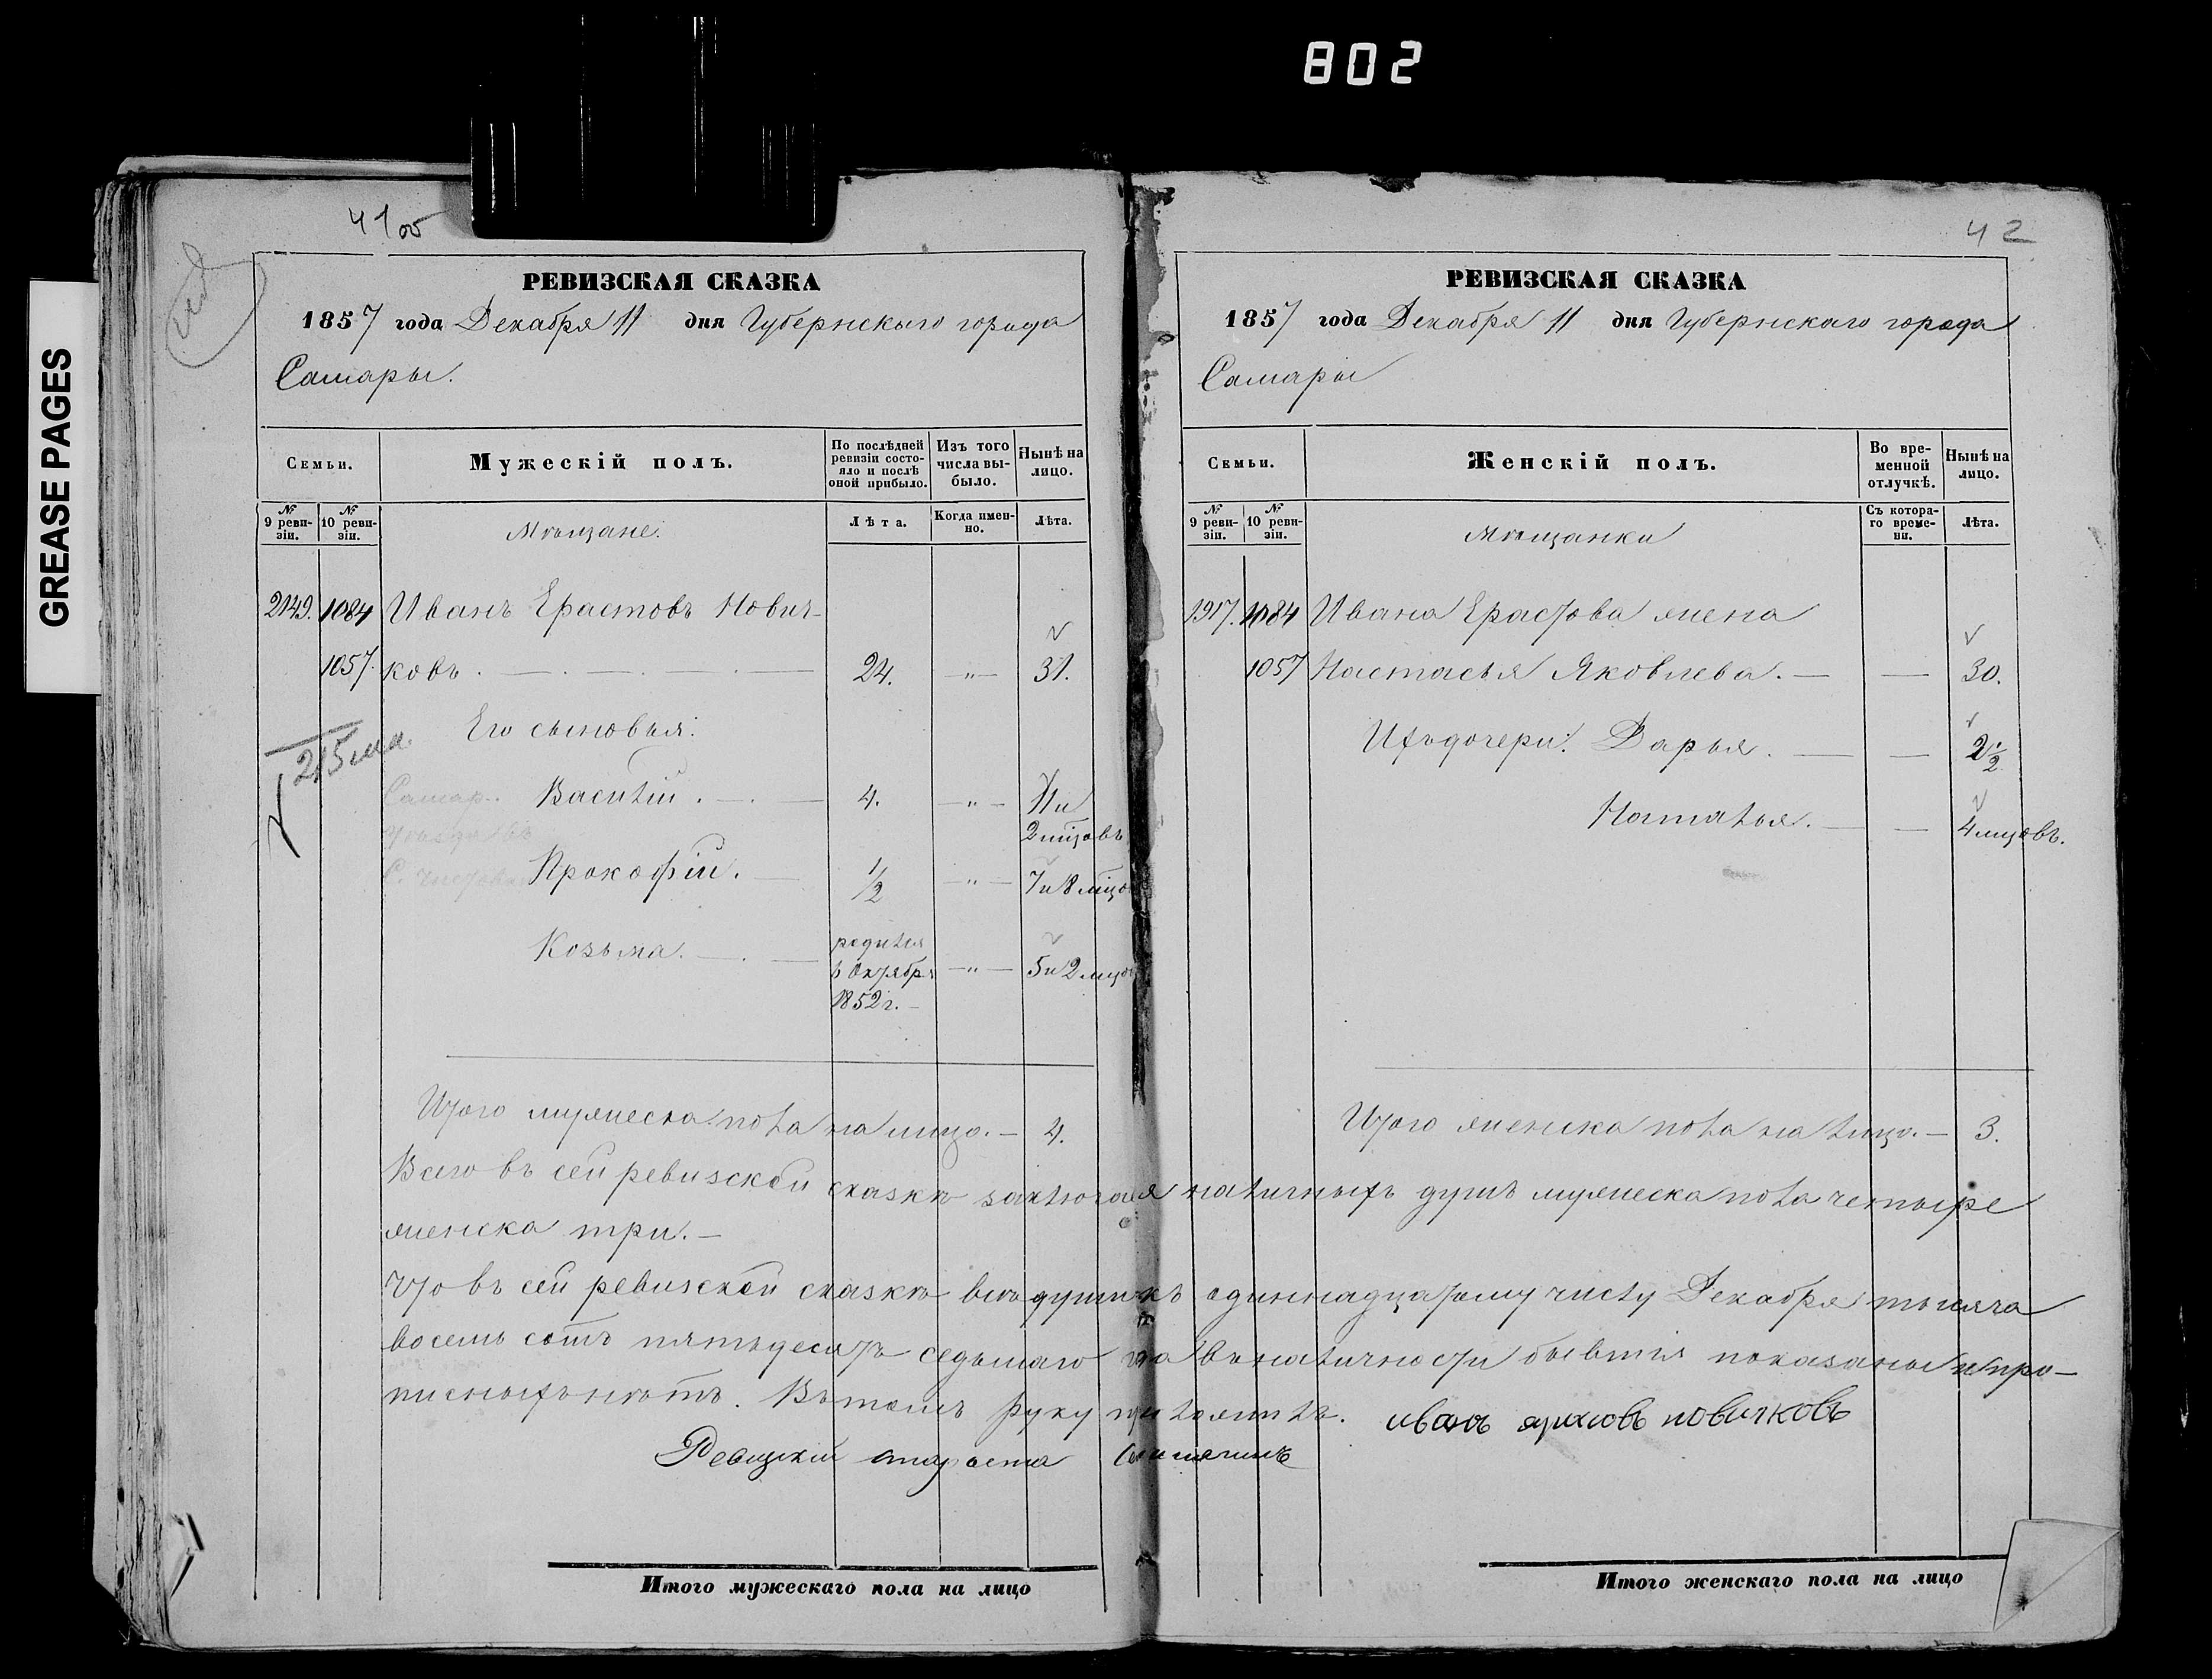 802
GREASE PAGES
41 об
РЕВИЗСКАЯ СКАЗКА
1857 года Декабря 11 дня Губернскаго города
Самары.
Семьи.
Мужескій полъ.
По послѣдней ревизіи состояло и послѣ оной прибыло.
Изъ того числа выбыло.
Нынѣ на лицо.
№ 9 ревизіи.
№ 10 ревизіи.
Мѣщане.
Лѣта.
Когда именно.
Лѣта.
2149. 1084 Иванъ Ерастовъ Нович-
1057. ковъ. 24. „ 31.
Его сыновья:
215
Самар. Василій. 4. „ 11 и
2 мѣцовъ
Прокофій. 1/2 „ 7 и 8 мѣцо
Козьма. родился
в Октябрѣ „ 5 и 2 мцов
1852 г.
Итого мужеска пола на лицо. 4.
42
РЕВИЗСКАЯ СКАЗКА
1857 года Декабря 11 дня Губернскаго города
Самары
Семьи.
Женскій полъ.
Во временной отлучкѣ.
Нынѣ на лицо.
№ 9 ревизіи.
№ 10 ревизіи.
мѣщанки
Съ котораго времени.
Лѣта.
1917. 1084 Ивана Ерастова жена
1057 Настасья Яковлева. 30.
Ихъ дочери: Дарья. 2 1/2
Наталья. 4 мцовъ.
Итого женска пола на лицо. 3.
Всего въ сей ревизской сказкѣ заключается наличныхъ душъ мужеска пола четыре
женска три.
Что въ сей ревизской сказкѣ всѣ души къ одиннадцатому числу Декабря тысяча
восемь сотъ пятьдесятъ седьмаго года въ наличности бывшія показаны и про-
писныхъ нѣтъ. Въ томъ руку приложилъ. иванъ новичковъ
Ревизскій староста
Итого мужескаго пола на лицо
Итого женскаго пола на лицо